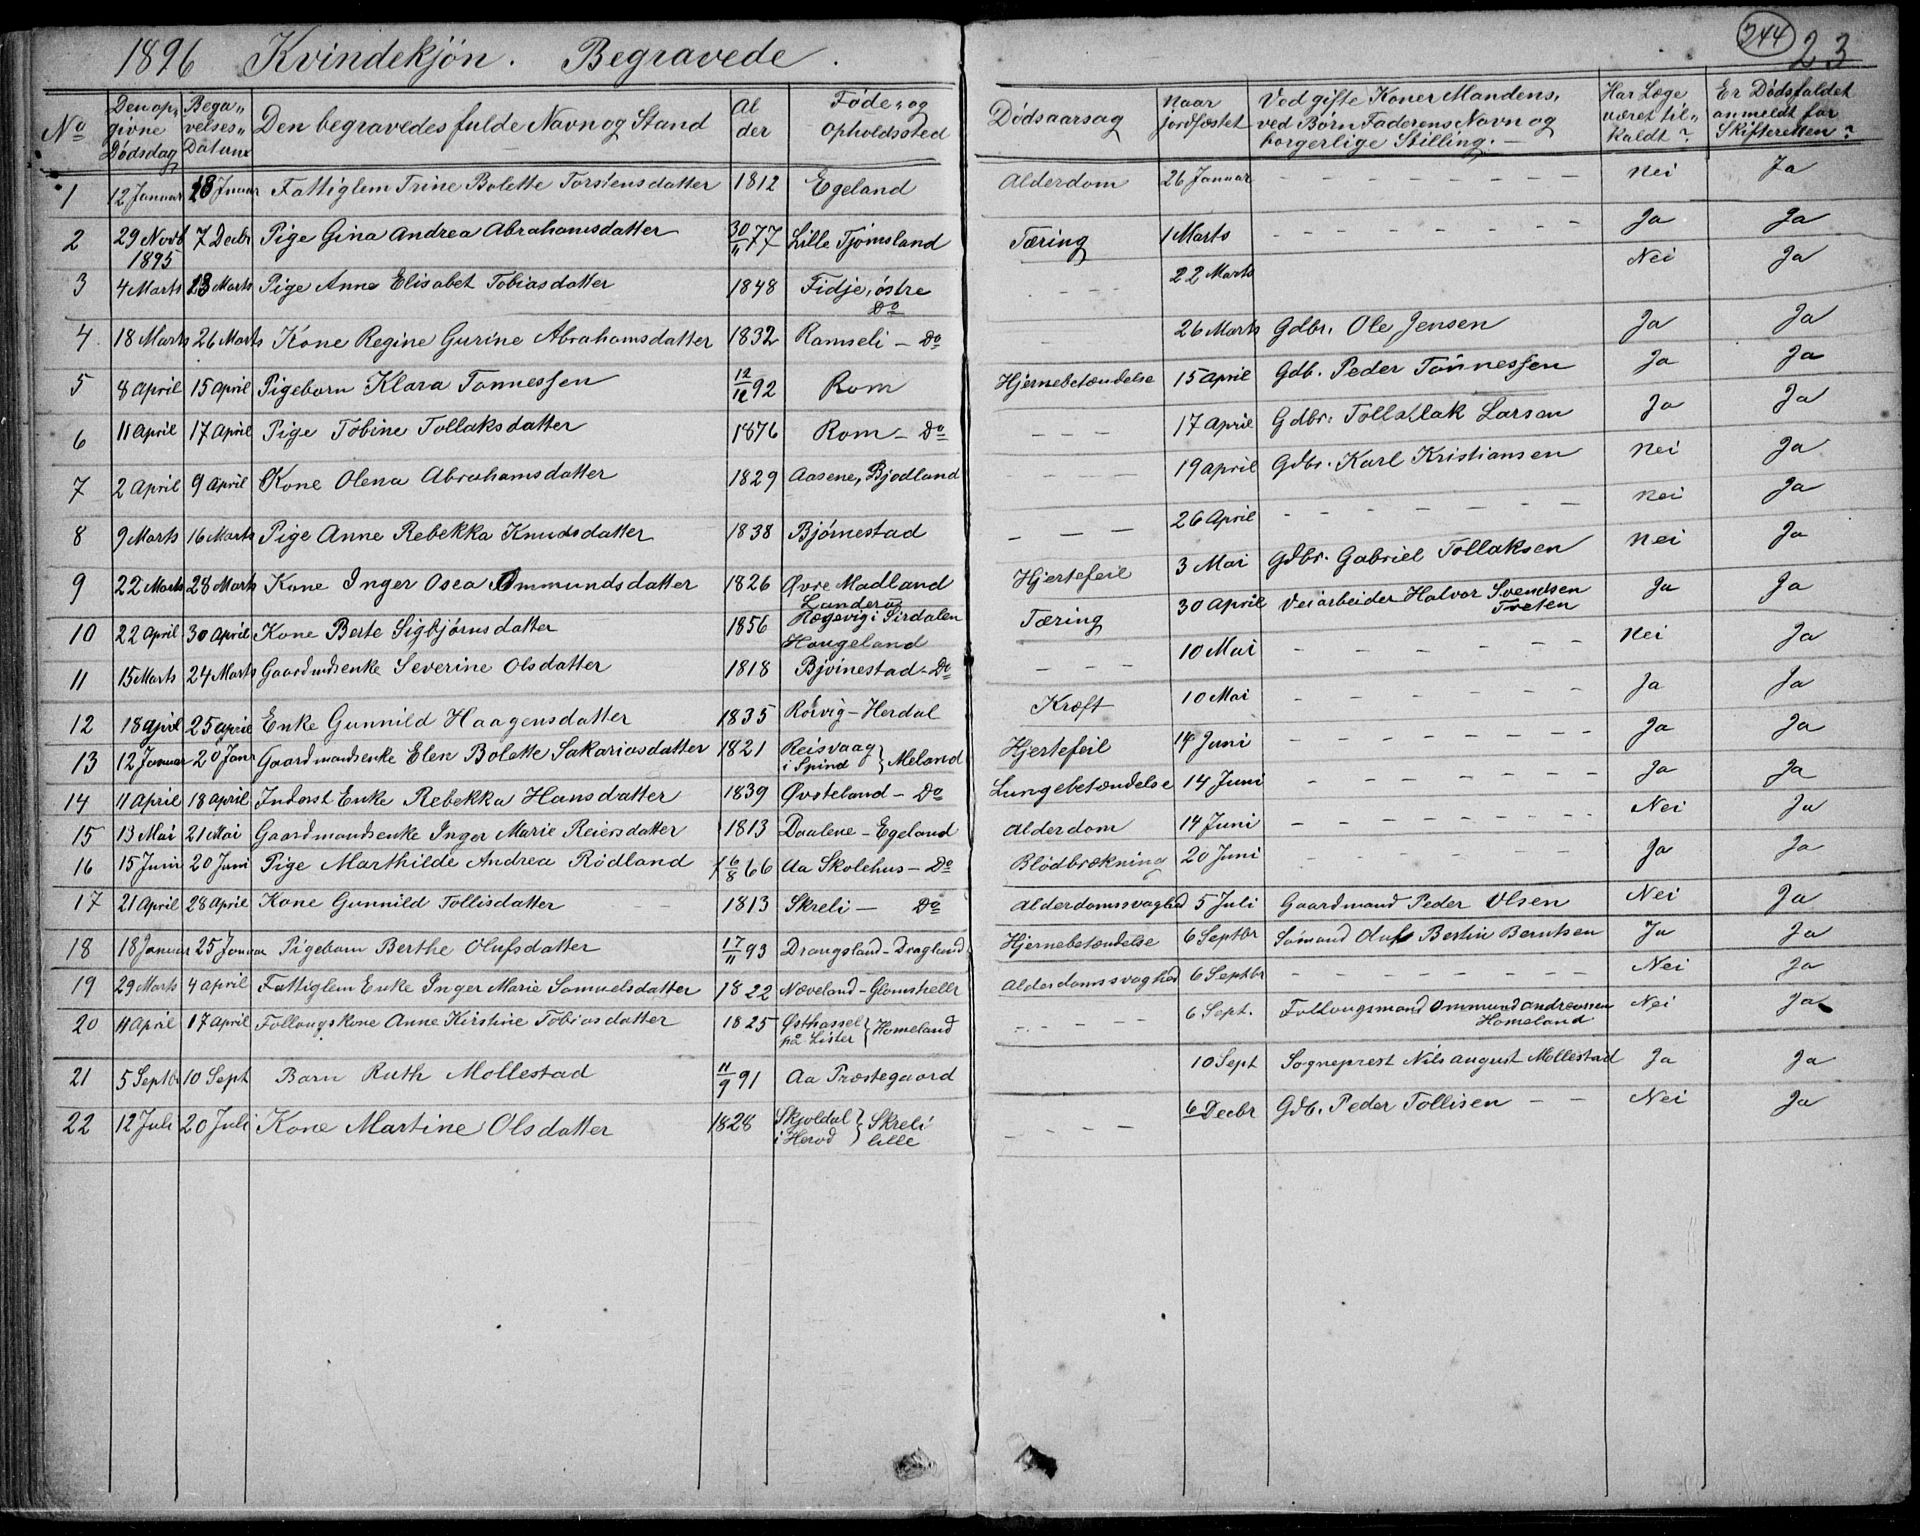 244
1896 Kvindekjön. Begravede. 23
No | Den op„givne Dödsdag | Bega„velses„Datum | Den begravedes fulde Navn og Stand | Alder | Føde- og Opholdssted | Dödsaarsag | Naar jordfæstet | Ved gifte Koner Mandens, ved Børn Faderens Navn og borgerlige Stilling. — | Har Læge været til„kaldt? | Er Dødsfaldet anmeldt for Skifteretten?
1 | 12 Januar | 18 Januar | Fattiglem Trine Bolette Torstensdatter | 1812 | Egeland | Alderdom | 26 Januar | – – – – – – – – | Nei | Ja
2 | 29 Novb 1895 | 7 Decbr | Pige Gina Andrea Abrahamsdatter | 30/11 77 | Lille Tjømsland | Tæring | 1 Marts | – – – – – – – – | Ja | Ja
3 | 4 Marts | 13 Marts | Pige Anne Elisabet Tobiasdatter | 1848 | Fidje, østre Do | – – – | 22 Marts | | Nei | Ja
4 | 18 Marts | 26 Marts | Kone Regine Gurine Abrahamsdatter | 1832 | Ramseli – Do | – – – | 26 Marts | Gdbr. Ole Jensen | Ja | Ja
5 | 8 April | 15 April | Pigebarn Klara Tonnessen | 12/12 92 | Rom | Hjernebetændelse | 15 April | Gdb. Peder Tönnessen | Ja | Ja
6 | 11 April | 17 April | Pige Tobine Tollaksdatter | 1876 | Rom – Do | – – – | 17 April | Gdbr. Tollallak Larsen | Ja | Ja
7 | 2 April | 9 April | Kone Olena Abrahamsdatter | 1829 | Aasene, Bjodland | – – – | 19 April | Gdbr. Karl Kristiansen | Nei | Ja
8 | 9 Marts | 16 Marts | Pige Anne Rebekka Knudsdatter | 1838 | Bjørnestad | – – – | 26 April | – – – – – – – | Nei | Ja
9 | 22 Marts | 28 Marts | Kone Inger Osea Ommundsdatter | 1826 | Øvre Madland Landerø | Hjertefeil | 3 Mai | Gdbr. Gabriel Tollaksen | Nei | Ja
10 | 22 April | 30 April | Kone Berte Sigbjørnsdatter | 1856 | Hægevig i Sirdalen Haugeland | Tæring | 30 April | Veiarbeider Halvor Svendsen Tveten | Ja | Ja
11 | 15 Marts | 24 Marts | Gaardmdsenke Severine Olsdatter | 1818 | Bjvinestad – Do | – – – | 10 Mai | – – – – – – – | Nei | Ja
12 | 18 April | 25 April | Enke Gunnild Haagensdatter | 1835 | Rörvig – Herdal | Kræft | 10 Mai | – – – – – – – | Ja | Ja
13 | 12 Januar | 20 Janr | Gaardmandsenke Elen Bolette Sakariasdatter | 1821 | Reisvaag i Spind } Meland | Hjertefeil | 14 Juni | – – – – – – – | Ja | Ja
14 | 11 April | 18 April | Inderst Enke Rebekka Hansdatter | 1839 | Øvsteland – Do | Lungebetændelse | 14 Juni | – – – – – – – | Ja | Ja
15 | 13 Mai | 21 Mai | Gaardmandsenke Inger Marie Reiersdatter | 1813 | Daalene – Egeland | Alderdom | 14 Juni | – – – – – – – | Nei | Ja
16 | 15 Juni | 20 Juni | Pige Marthilde Andrea Rödland | 6/8 66 | Aa Skolehus – Do | Blodbrækning | 20 Juni | – – – – – – – | Ja | Ja
17 | 21 April | 28 April | Kone Gunnild Tollisdatter | 1813 | Skreli – Do | Alderdomssvaghed | 5 Juli | Gaardmand Peder Olsen | Nei | Ja
18 | 18 Januar | 25 Januar | Pigebarn Berthe Olufsdatter | 17/11 93 | Drangsland – Dragland | Hjernebetændelse | 6 Septbr | Sömand Olufs Bertin Berntsen | Ja | Ja
19 | 29 Marts | 4 April | Fattiglem Enke Inger Marie Samuelsdatter | 1822 | Næveland – Glomsheller | Alderdomssvaghed | 6 Septbr | – – – – – – – | Nei | Ja
20 | 11 April | 17 April | Follaugskone Anne Kirstine Tobiasdatter | 1825 | Østhassel på Lister } Homeland | – – – – | 6 Sept. | Follaugsmand Ommund Andreassen Homeland | Nei | Ja
21 | 5 Septbr | 10 Sept | Barn Ruth Mollestad | 11/9 91 | Aa Præstegaard | | 10 Sept | Sogneprest Nils August Mollestad | Ja | Ja
22 | 12 Juli | 20 Juli | Kone Martine Olsdatter | 1828 | Skjoldal i Herod } Skreli lille | – – – – | 6 Decbr | Gdb. Peder Tollisen – – | Nei | Ja